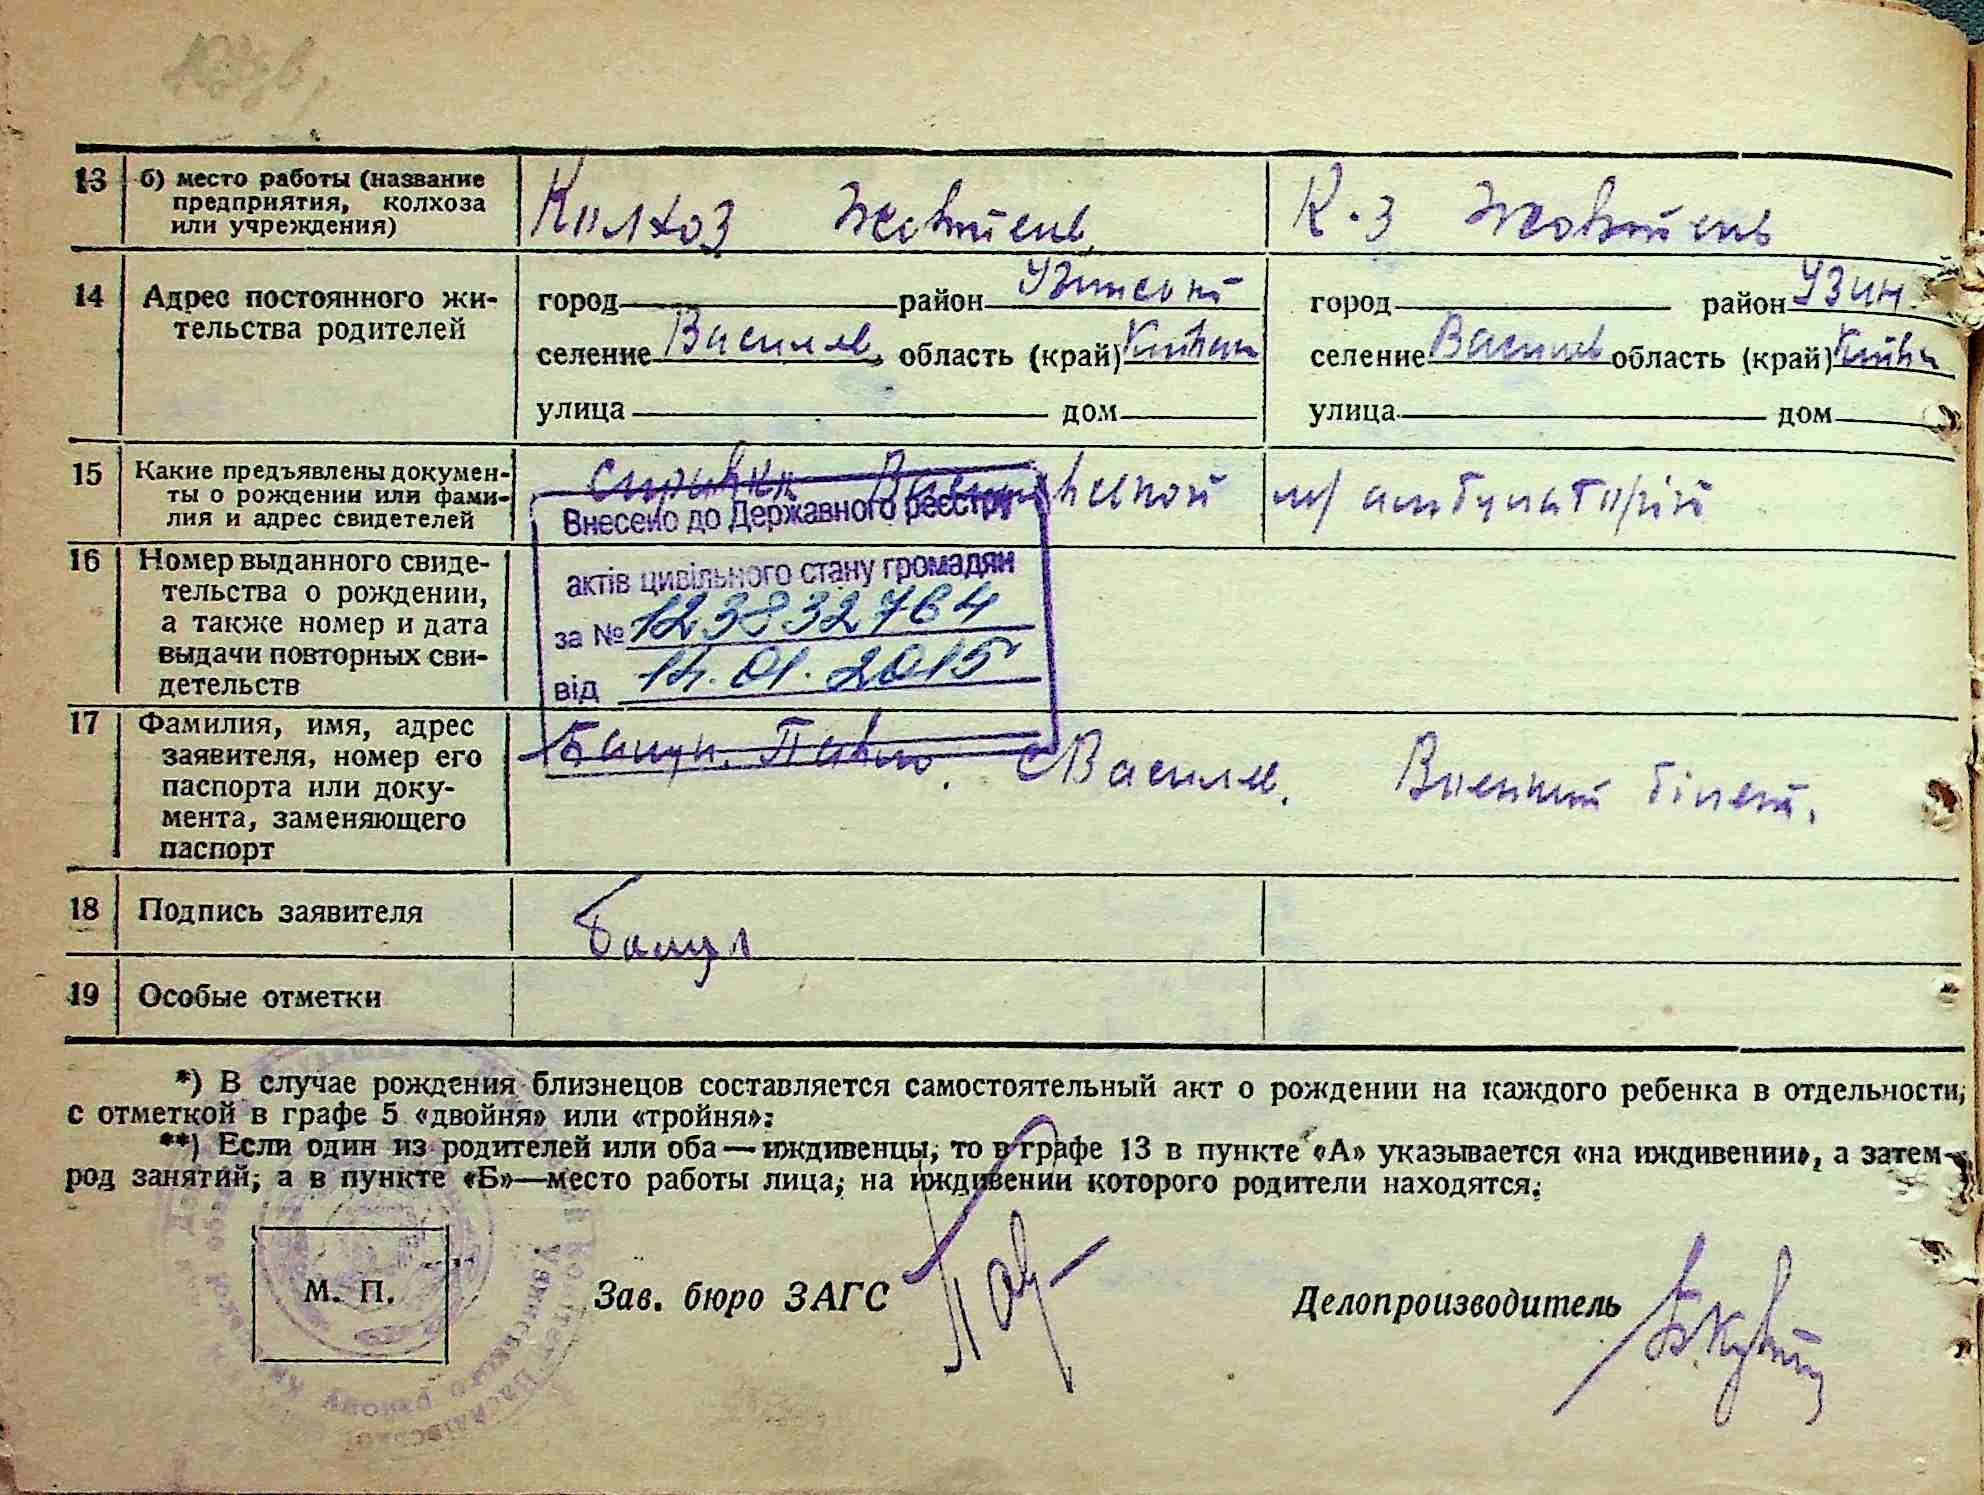 13 б) место работы (название
предприятия, колхоза
или учреждения)
Колхоз Жовтень
К-з Жовтень
14 Адрес постоянного жи-
тельства родителей
город район Узинский
селение Василев область (край) Київск
улица дом
город район Узин.
селение Василев область (край) Київ
улица дом
15 Какие предъявлены докумен-
ты о рождении или фами-
лия и адрес свидетелей
справка м/амбулаторій
Внесено до Державного реєстру
актів цивільного стану громадян
за № 123832764
від 14.01.2015
16 Номер выданного свиде-
тельства о рождении,
а также номер и дата
выдачи повторных сви-
детельств
17 Фамилия, имя, адрес
заявителя, номер его
паспорта или доку-
мента, заменяющего
паспорт
Павло. с Василев. Военний білет.
18 Подпись заявителя
19 Особые отметки
*) В случае рождения близнецов составляется самостоятельный акт о рождении на каждого ребенка в отдельности,
с отметкой в графе 5 «двойня» или «тройня»:
**) Если один из родителей или оба — иждивенцы, то в графе 13 в пункте «А» указывается «на иждивении», а затем
род занятий; а в пункте «Б»—место работы лица, на иждивении которого родители находятся.
М. П.
Зав. бюро ЗАГС
Делопроизводитель